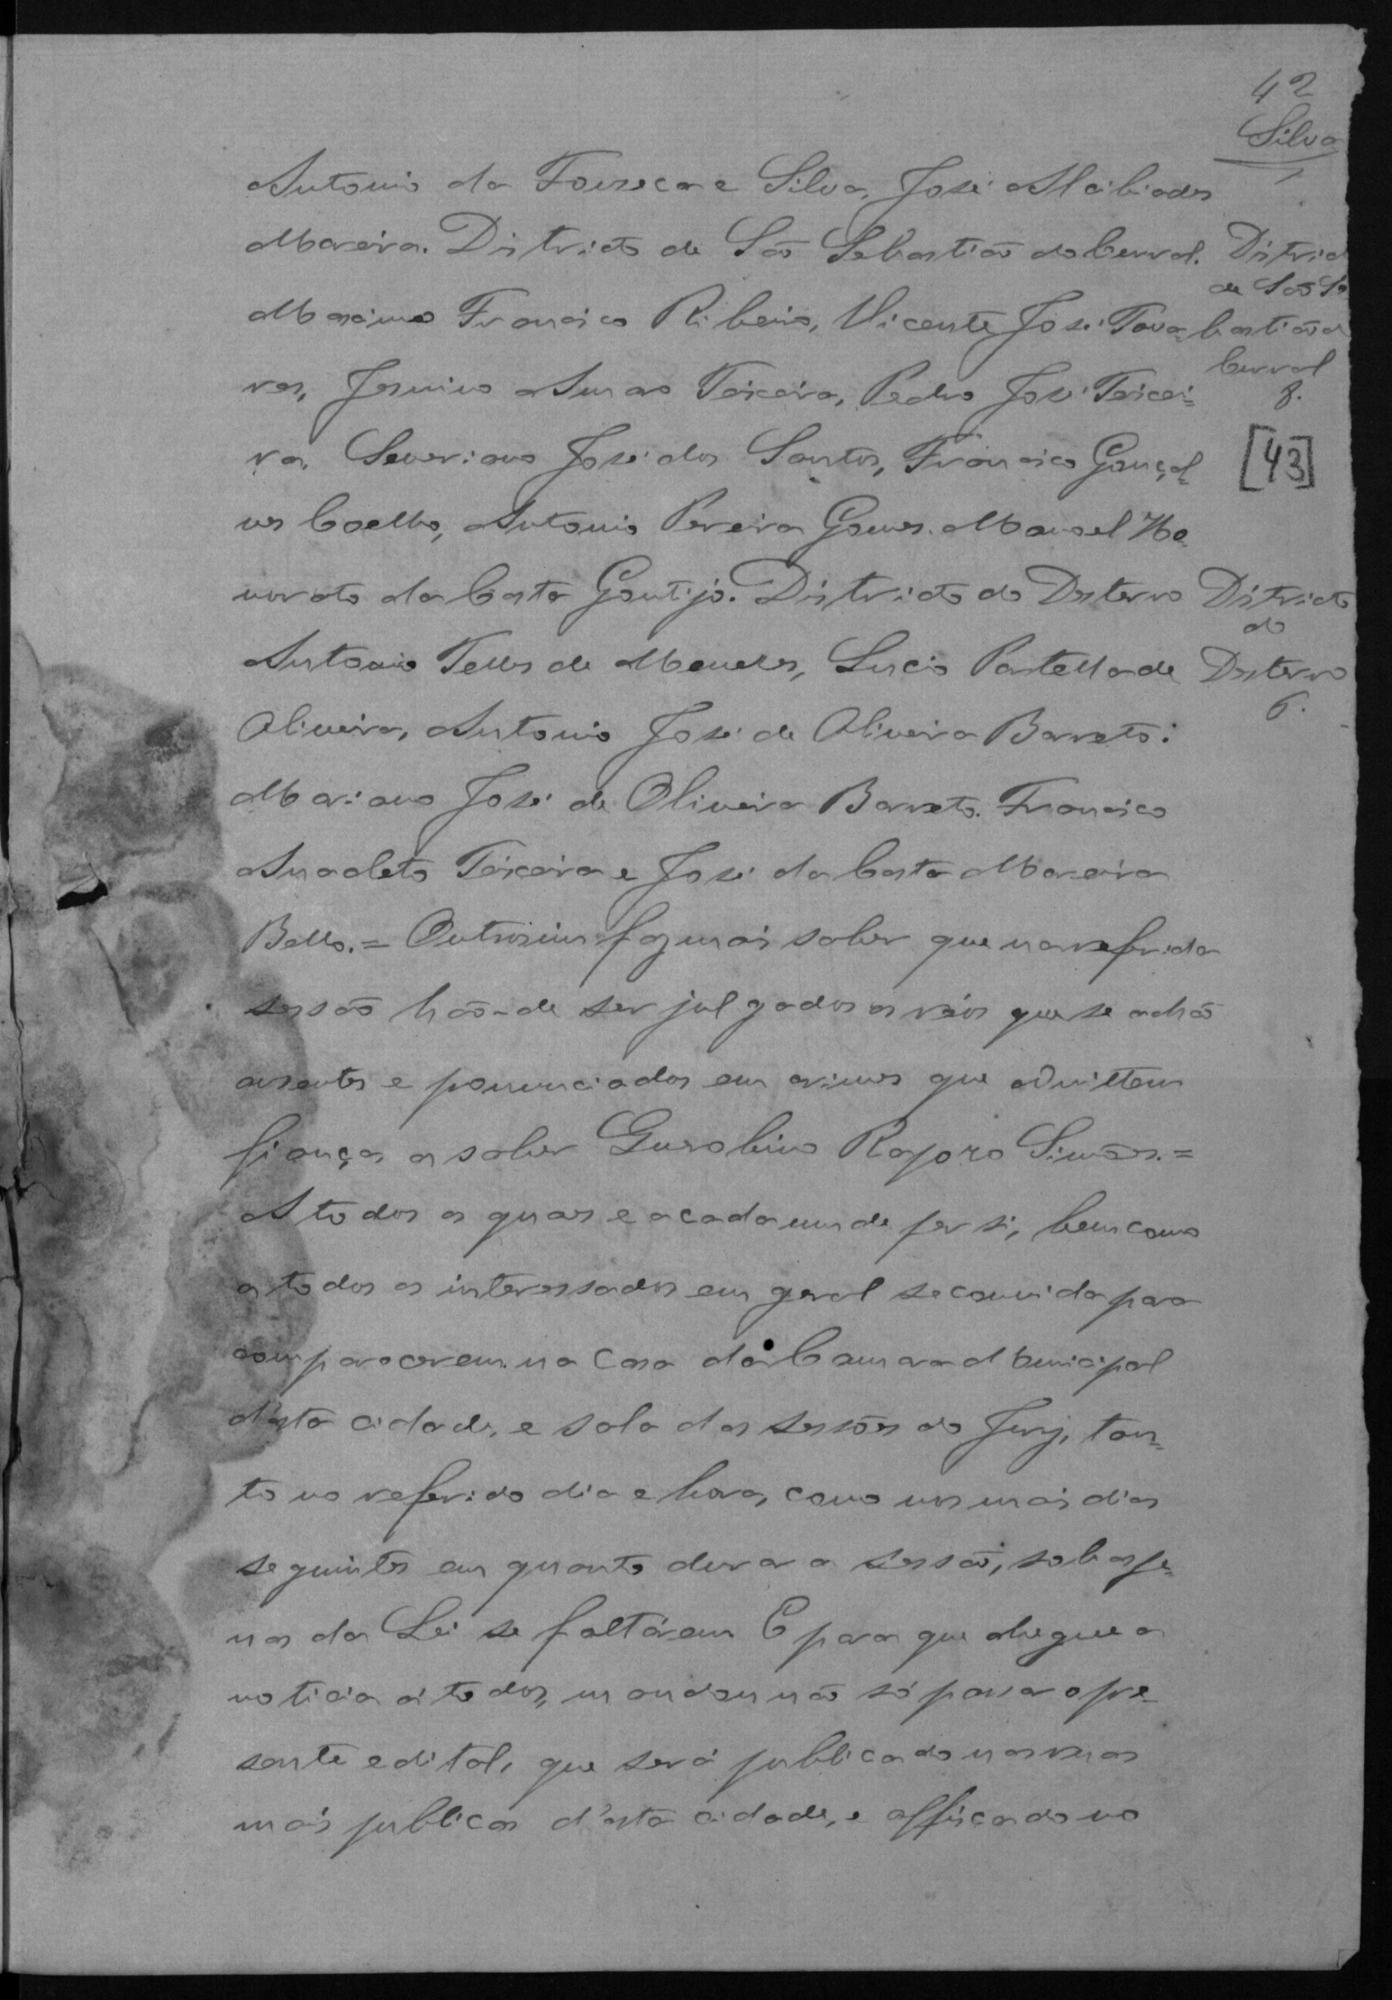 42
Silva
Antonio da Fonseca e Silva, José Alcibiades
Moreira. Districto de São Sebastião do Curral.
Districto
de São Se
bastião do
Curral
8.
Maximo Francisco Ribeiro, Vicente José Tava-
res, Jesuino Teixeira, Pedro José Teixei-
ra, Severiano José dos Santos, Francisco Gonçal-
[43]
ves Coelho, Antonio Pereira Gomes. Manoel Ho-
norato da Costa Gontijo. Districto do Desterro
Districto
do
Desterro
6.
Antonio Telles de Menezes, Lucio Portella de
Oliveira, Antonio José de Oliveira Barreto:
Mariano José de Oliveira Barreto. Francisco
Anacleto Teixeira e José da Costa Moreira
Bello. = Outrosim faz mais saber que na referida
sessão hão-de ser julgados os réos que se achão
ausentes e pronunciados em crimes que admittem
fiança a saber Raposo Simões. =
A todos os quaes e a cada um de per si, bem como
a todos os interessados em geral se convida para
comparecerem na Casa da Camara Municipal
d'esta cidade, e sala das sessões do Jury, tan-
to no referido dia e hora, como nos mais dias
seguintes em quanto durar a sessão, sob as pe-
nas da Lei se faltarem E para que chegue a
noticia á todos, mandou não só passar o pre-
sente edital, que será publicado nas ruas
mais publicas d'esta cidade, e affixado no